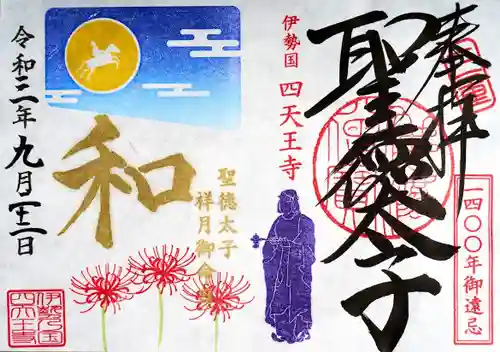 奉拝
聖徳太子
一四〇〇年御遠忌
伊勢国 四天王寺
聖徳太子
祥月御命日
和
令和三年九月二十二日
伊勢国
四天王寺